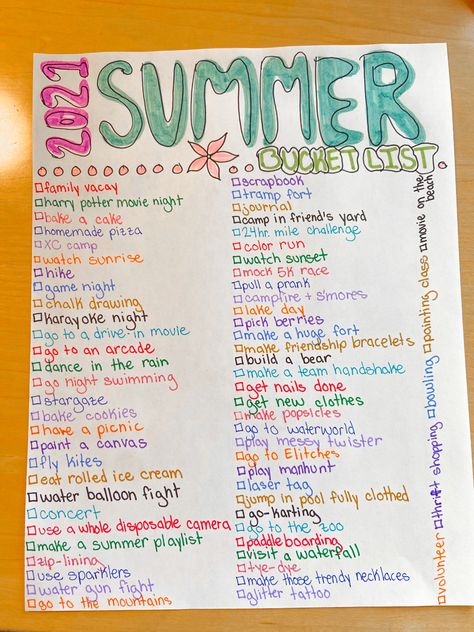 2021
SUMMER
BUCKET LIST
family vacay
harry potter movie night
bake a cake
homemade pizza
XC camp
watch sunrise
hike
game night
chalk drawing
karayoke night
go to a drive-in movie
go to an arcade
dance in the rain
go night swimming
stargaze
bake cookies
have a picnic
paint a canvas
fly kites
eat rolled ice cream
water balloon fight
concert
use a whole disposable camera
make a summer playlist
zip-lining
use sparklers
water gun fight
go to the mountains
scrapbook
tramp fort
journal
camp in friend's yard
24hr. mile challenge
color run
watch sunset
mock 5K race
pull a prank
campfire + s'mores
lake day
pick berries
make a huge fort
make friendship bracelets
build a bear
make a team handshake
get nails done
get new clothes
make popsicles
go to waterworld
play messy twister
go to Elitches
play manhunt
laser tag
jump in pool fully clothed
go-karting
go to the zoo
paddleboarding
visit a waterfall
tye-dye
make those trendy necklaces
glitter tattoo
movie on the beach
painting class
bowling
thrift shopping
volunteer